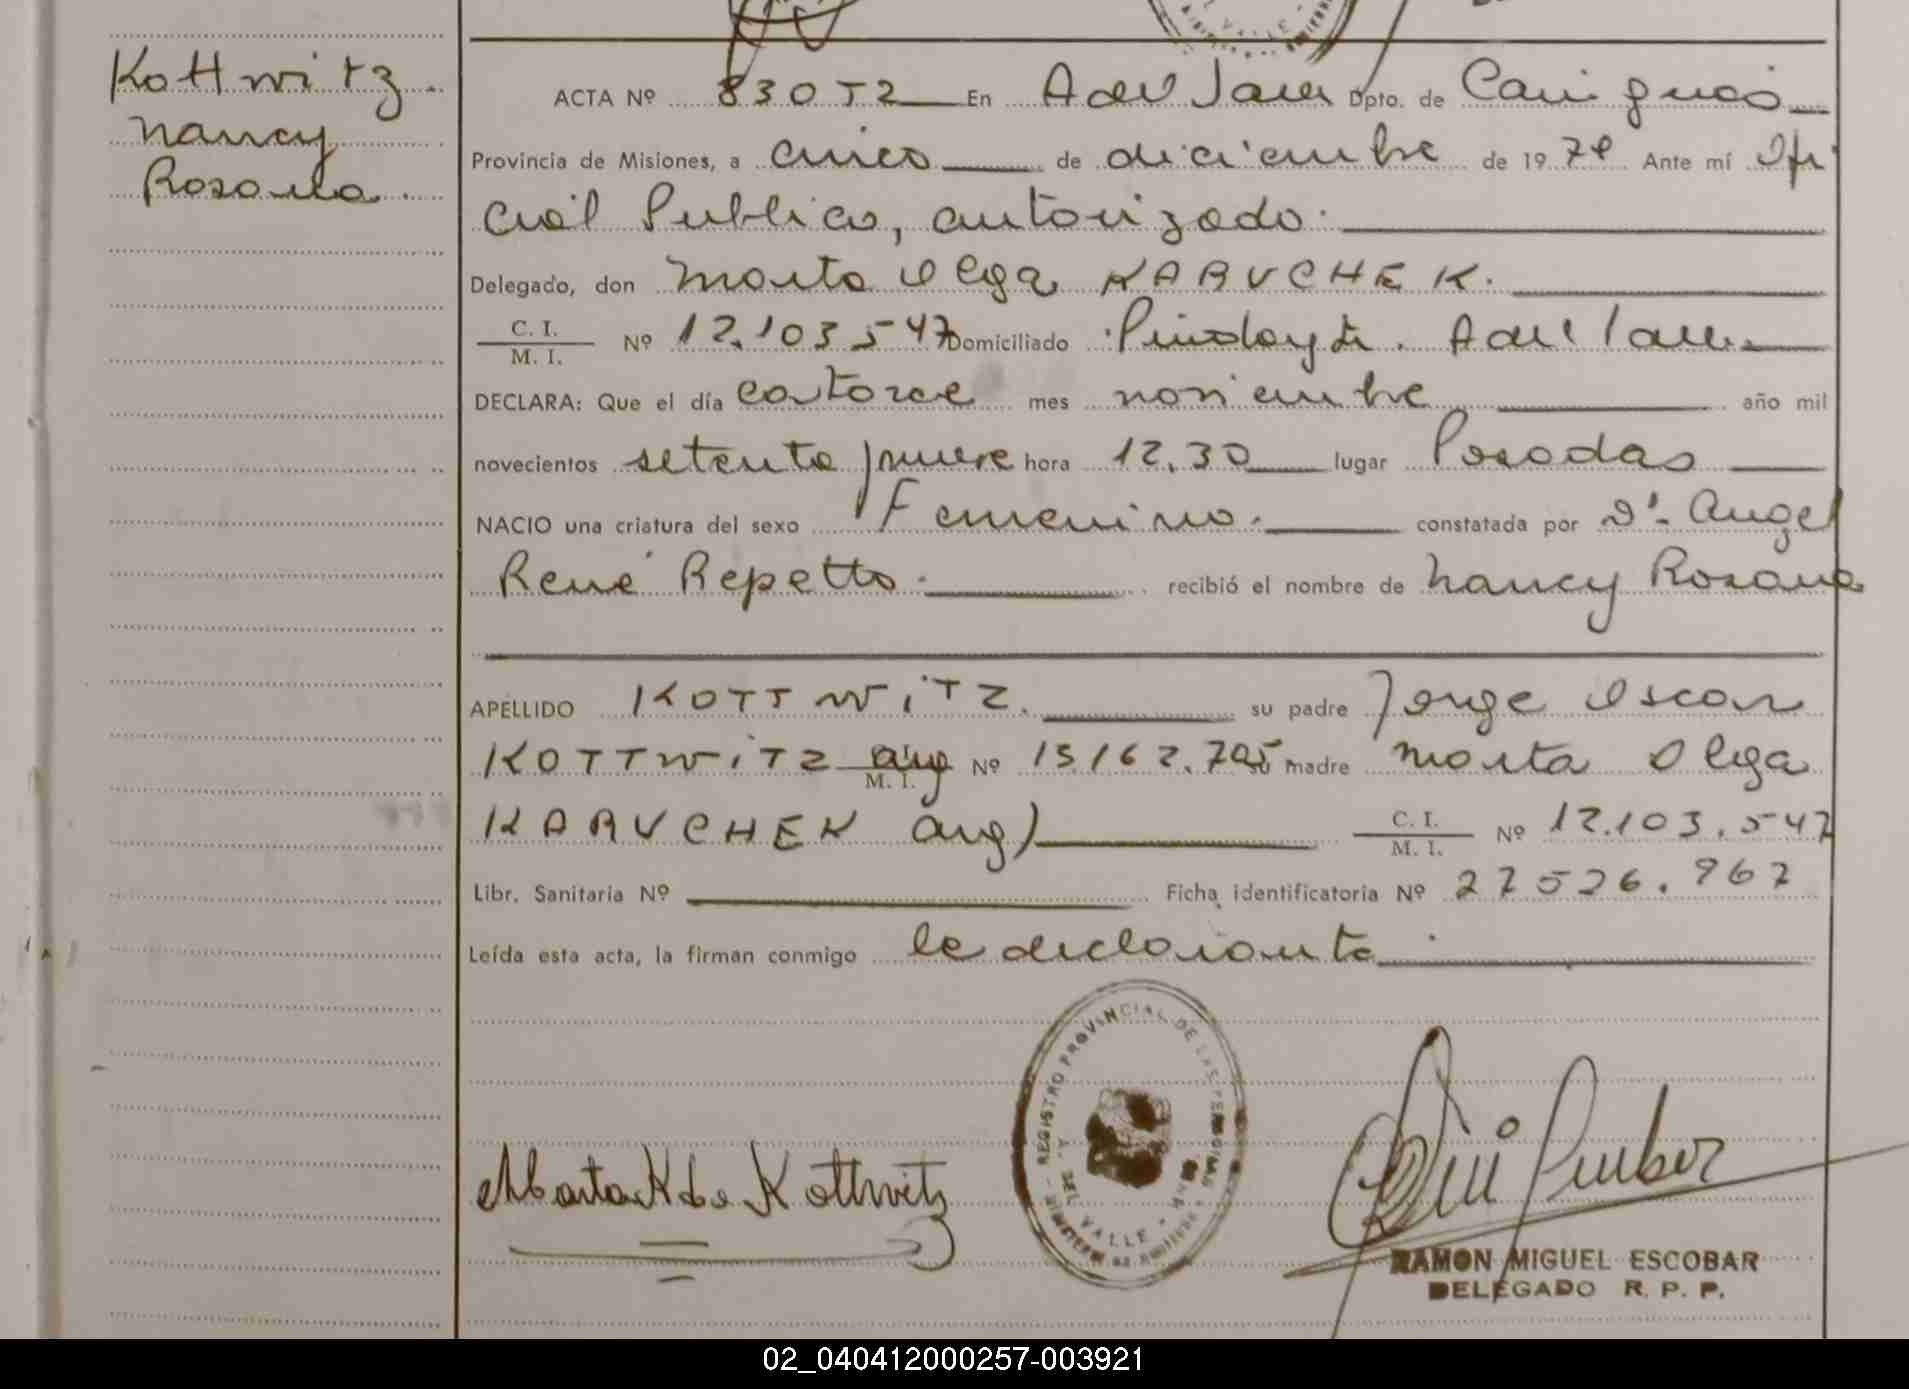 Kottwitz.
Nancy
Rosana.
ACTA Nº 830T2 En A del Valle Dpto. de Cainguás
Provincia de Misiones, a cinco de diciembre de 1979 Ante mí Ofi
cial Publico, autorizado.
Delegado, don Marta Olga KARUCHEK.
C. I.
M. I. Nº 12.103.547 Domiciliado Pindayti. A del Valle.
DECLARA: Que el día catorce mes noviembre año mil
novecientos setenta y nueve hora 12.30 lugar Posadas
NACIO una criatura del sexo Femenino. constatada por Dr. Angel
René Repetto. recibió el nombre de Nancy Rosana
APELLIDO KOTTWITZ. su padre Jorge Oscar
KOTTWITZ arg M. I. Nº 13.162.705 su madre Marta Olga
KARUCHEK arg) C. I.
M. I. Nº 12.103.547
Libr. Sanitaria Nº Ficha identificatoria Nº 27526.967
Leída esta acta, la firman conmigo la declarante.
REGISTRO PROVINCIAL DE LAS PERSONAS
A. DEL VALLE
Marta K de Kottwitz
RAMON MIGUEL ESCOBAR
DELEGADO R. P. P.
02_040412000257-003921